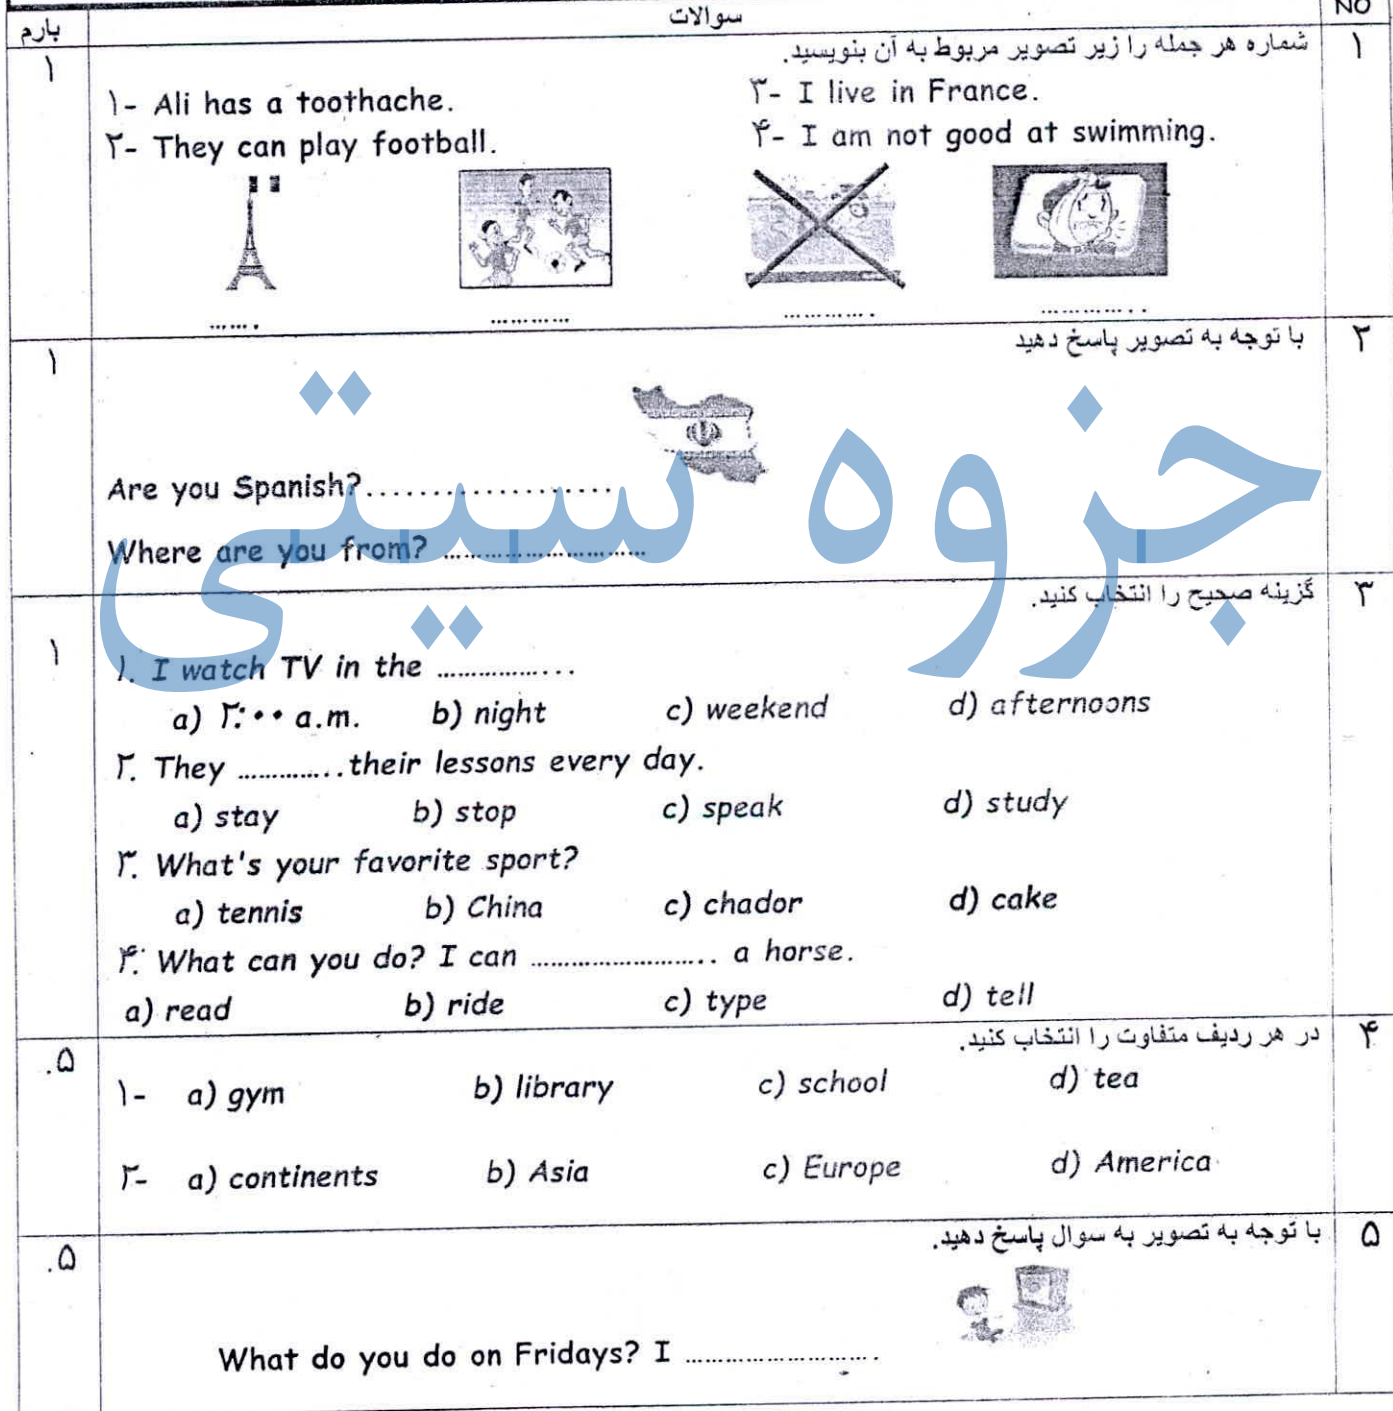 NO سوالات بارم
۱ شماره هر جمله را زیر تصویر مربوط به آن بنویسید. ۱
۱- Ali has a toothache. ۳- I live in France.
۲- They can play football. ۴- I am not good at swimming.
....... ............ ............. .............
۲ با توجه به تصویر پاسخ دهید ۱
Are you Spanish?...................
Where are you from? ..........................
جزوه سیتی
۳ گزینه صحیح را انتخاب کنید. ۱
۱. I watch TV in the ..................
a) ۲:۰۰ a.m. b) night c) weekend d) afternoons
۲. They ..............their lessons every day.
a) stay b) stop c) speak d) study
۳. What's your favorite sport?
a) tennis b) China c) chador d) cake
۴. What can you do? I can ........................ a horse.
a) read b) ride c) type d) tell
۴ در هر ردیف متفاوت را انتخاب کنید. .۵
۱- a) gym b) library c) school d) tea
۲- a) continents b) Asia c) Europe d) America
۵ با توجه به تصویر به سوال پاسخ دهید. .۵
What do you do on Fridays? I .........................